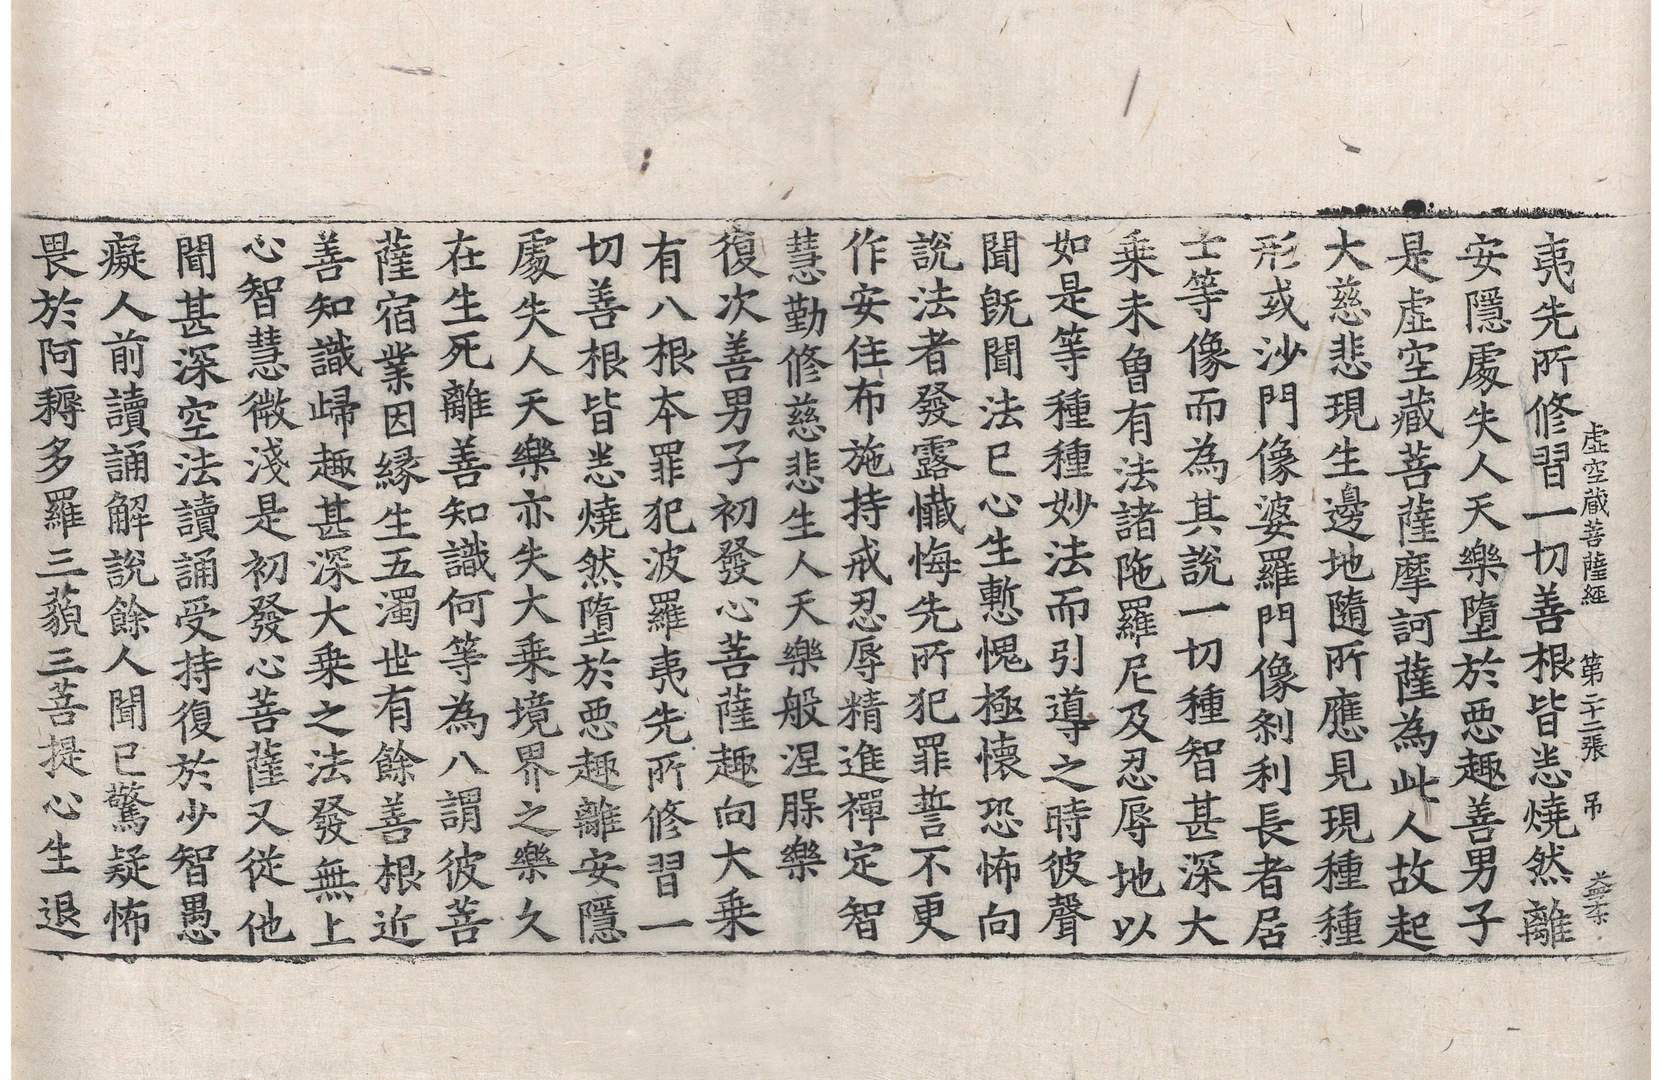 虛空藏菩薩經 第二十二張 弔
夷先所修習一切善根皆悉燒然離
安隱處失人天樂墮於惡趣善男子
是虛空藏菩薩摩訶薩為此人故起
大慈悲現生邊地隨所應見現種種
形或沙門像婆羅門像剎利長者居
士等像而為其說一切種智甚深大
乗未曾有法諸陁羅尼及忍辱地以
如是等種種妙法而引導之時彼聲
聞旣聞法已心生慙愧極懷恐怖向
說法者發露懺悔先所犯罪誓不更
作安住布施持戒忍辱精進禪定智
慧勤修慈悲生人天樂般涅槃樂
復次善男子初發心菩薩趣向大乗
有八根本罪犯波羅夷先所修習一
切善根皆悉燒然墮於惡趣離安隱
處失人天樂亦失大乗境界之樂久
在生死離善知識何等為八謂彼菩
薩宿業因緣生五濁世有餘善根近
善知識歸趣甚深大乗之法發無上
心智慧微淺是初發心菩薩又從他
聞甚深空法讀誦受持復於少智愚
癡人前讀誦解說餘人聞已驚疑怖
畏於阿耨多羅三藐三菩提心生退